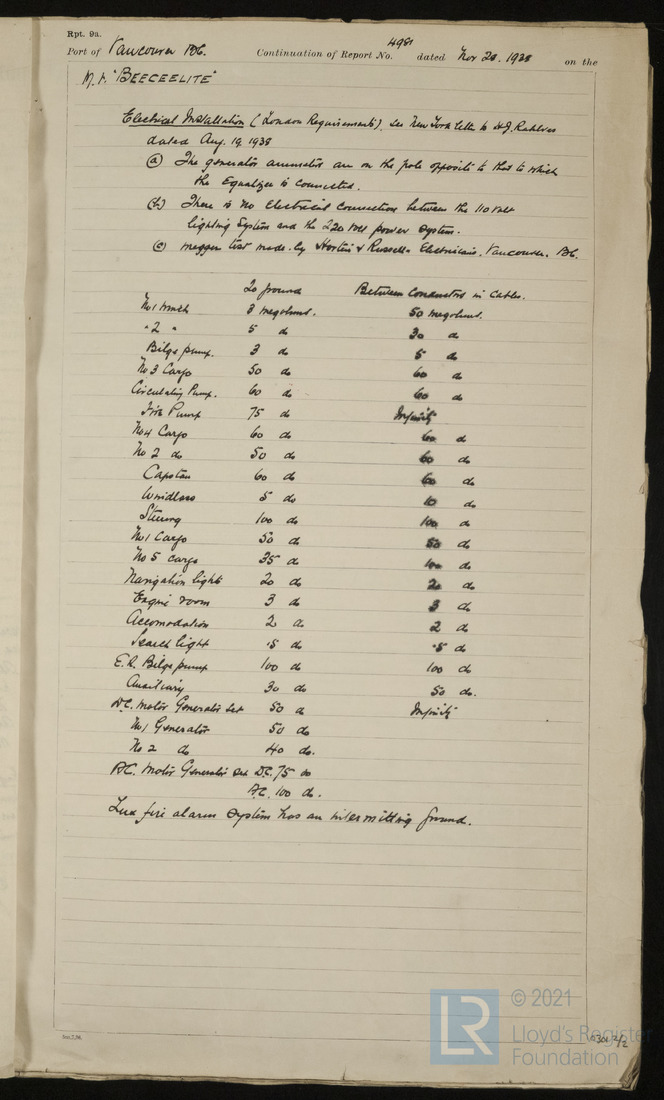 Rpt. 9a.
Port of Vancouver BC. Continuation of Report No. 4981 dated Nov 28. 1938 on the
M.V. "BEECEELITE"
Electrical Installation (London Requirements), see New York letter to
dated Aug. 19 1938
(a) The generator ammeters are on the pole opposite to that to which
the Equalizer is connected.
(b) There is no Electrical connection between the 110 volt
lighting system and the 220 volt power system.
(c) megger test made by & Russell Electricians, Vancouver, BC.
To ground Between Conductors in Cables.
No 1 winch 3 megohms. 50 megohms.
" 2 " 5 do 30 do
Bilge pump. 3 do 5 do
No 3 Cargo 50 do 60 do
Circulating Pump. 60 do 60 do
Fire Pump 75 do Infinity
No 4 Cargo 60 do 60 do
No 2 do 50 do 60 do
Capstan 60 do 60 do
Windlass 5 do 10 do
Steering 100 do 100 do
No 1 Cargo 50 do 50 do
No 5 cargo 35 do 100 do
Navigation lights 20 do 20 do
Engine room 3 do 3 do
Accomodation 2 do 2 do
Search light .5 do .5 do
E.R. Bilge pump 100 do 100 do
Auxiliary 30 do 50 do.
D.C. Motor Generator Set 50 do Infinity
No 1 Generator 50 do
No 2 do 40 do.
A.C. Motor Generator Set D.C. 75 do
A.C. 100 do.
Lux fire alarm system has an intermitting ground.
© 2021
LR
Lloyd's Register
Foundation
2/2